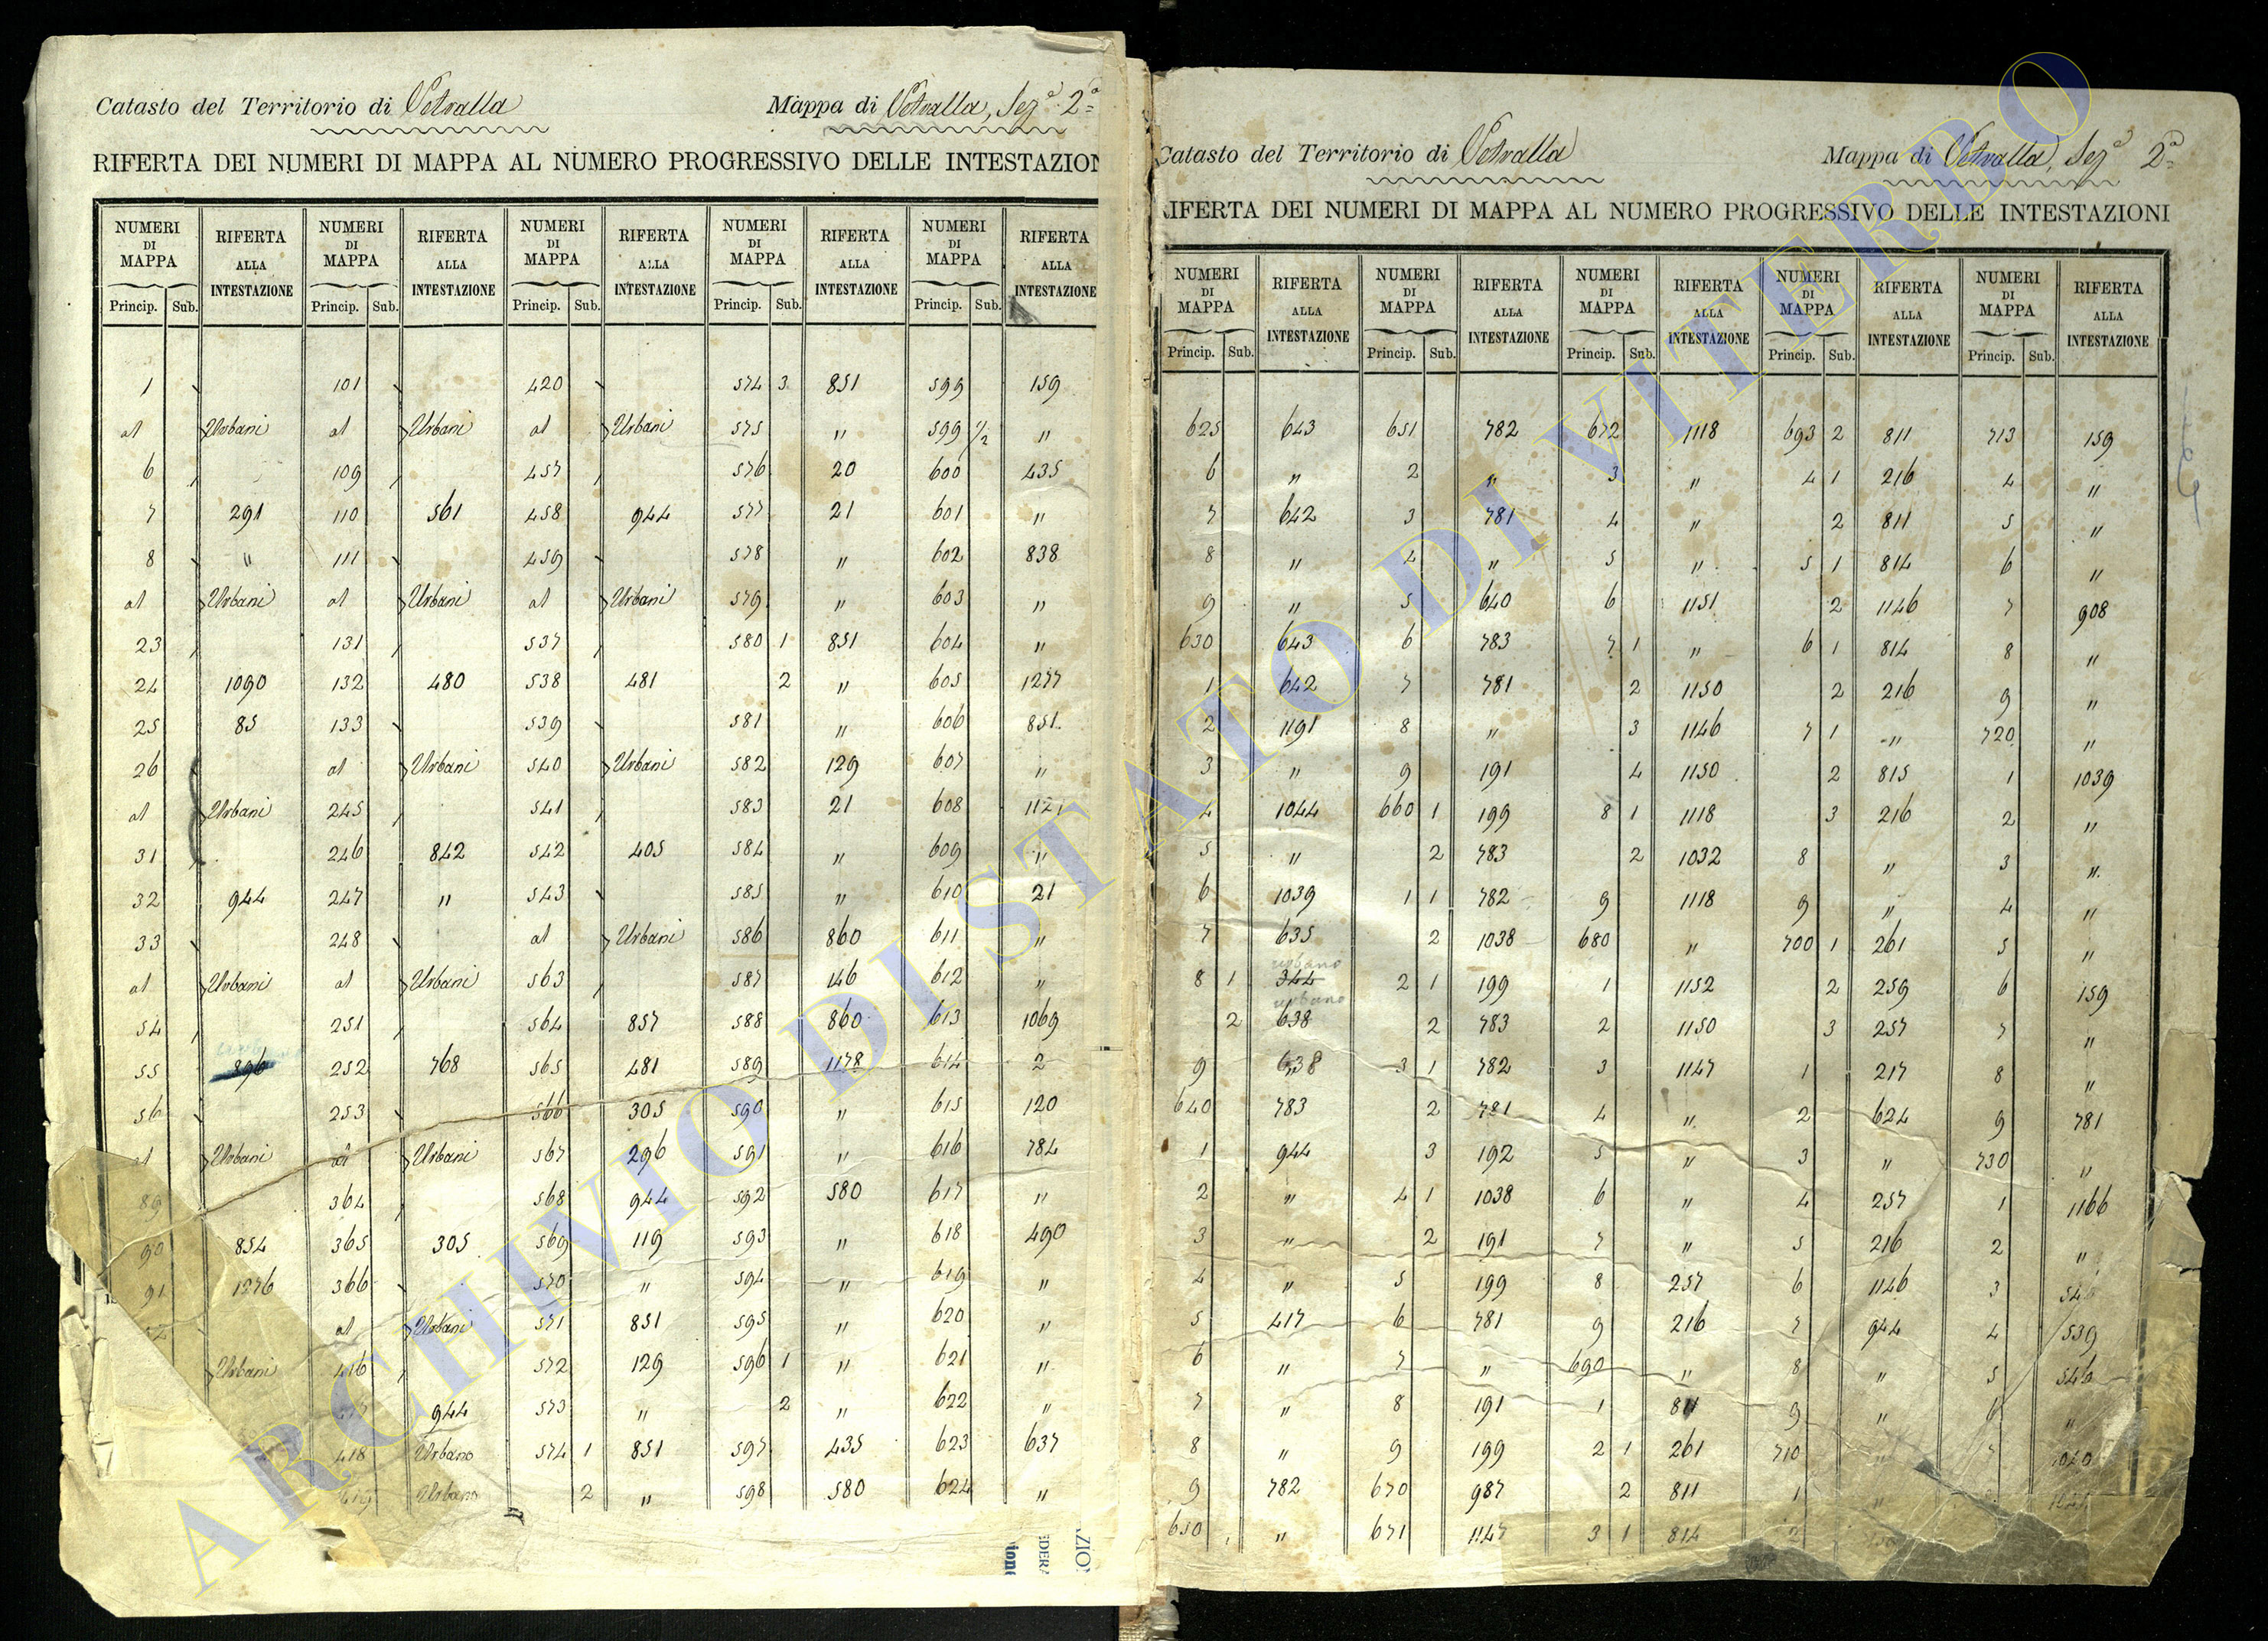 Catasto del Territorio di Vetralla Mappa di Vetralla, Sez.ª 2ª
RIFERTA DEI NUMERI DI MAPPA AL NUMERO PROGRESSIVO DELLE INTESTAZION
NUMERI DI MAPPA RIFERTA ALLA INTESTAZIONE NUMERI DI MAPPA RIFERTA ALLA INTESTAZIONE NUMERI DI MAPPA RIFERTA ALLA INTESTAZIONE NUMERI DI MAPPA RIFERTA ALLA INTESTAZIONE NUMERI DI MAPPA RIFERTA ALLA INTESTAZIONE
Princip. Sub. Princip. Sub. Princip. Sub. Princip. Sub. Princip. Sub.
1 101 420 574 3 851 599 159
al Urbani al Urbani al Urbani 575 " 599 1/2 "
6 109 457 576 20 600 435
7 291 110 561 458 944 577 21 601 "
8 " 111 459 578 " 602 838
al Urbani al Urbani al Urbani 579 " 603 "
23 131 537 580 1 851 604 "
24 1090 132 480 538 481 2 " 605 1277
25 85 133 539 581 " 606 851
26 al Urbani 540 Urbani 582 129 607 "
al Urbani 245 541 583 21 608 1121
31 246 842 542 405 584 " 609 "
32 944 247 " 543 585 " 610 21
33 248 al Urbani 586 860 611 "
al Urbani al Urbani 563 587 146 612 "
54 251 564 857 588 860 613 1069
55 896 252 768 565 481 589 1178 614 2
56 253 566 305 590 " 615 120
al Urbani al Urbani 567 296 591 " 616 784
89 364 568 944 592 580 617 "
90 854 365 305 569 119 593 " 618 490
91 1276 366 570 " 594 " 619 "
al Urbani 571 851 595 " 620 "
Urbani 416 572 129 596 1 " 621 "
417 944 573 " 2 " 622 "
418 Urbano 574 1 851 597 435 623 637
419 Urbano 2 " 598 580 624 "
Catasto del Territorio di Vetralla Mappa di Vetralla, Sez.ª 2ª
RIFERTA DEI NUMERI DI MAPPA AL NUMERO PROGRESSIVO DELLE INTESTAZIONI
NUMERI DI MAPPA RIFERTA ALLA INTESTAZIONE NUMERI DI MAPPA RIFERTA ALLA INTESTAZIONE NUMERI DI MAPPA RIFERTA ALLA INTESTAZIONE NUMERI DI MAPPA RIFERTA ALLA INTESTAZIONE NUMERI DI MAPPA RIFERTA ALLA INTESTAZIONE
Princip. Sub. Princip. Sub. Princip. Sub. Princip. Sub. Princip. Sub.
625 643 651 782 672 1118 693 2 811 713 159
6 " 2 " 3 " 4 1 216 4 "
7 642 3 781 4 " 2 811 5 "
8 " 4 " 5 " 5 1 814 6 "
9 " 5 640 6 1151 2 1146 7 908
630 643 6 783 7 1 " 6 1 814 8 "
1 642 7 781 2 1150 2 216 9 "
2 1191 8 " 3 1146 7 1 " 720 "
3 " 9 191 4 1150 2 815 1 1039
4 1044 660 1 199 8 1 1118 3 216 2 "
5 " 2 783 2 1032 8 " 3 "
6 1039 1 1 782 9 1118 9 " 4 "
7 635 2 1038 680 " 700 1 261 5 "
urbano
8 1 344 2 1 199 1 1152 2 259 6 159
urbano
2 638 2 783 2 1150 3 257 7 "
9 638 3 1 782 3 1147 1 217 8 "
640 783 2 781 4 " 2 624 9 781
1 944 3 192 5 " 3 " 730 "
2 " 4 1 1038 6 " 4 257 1 1166
3 " 2 191 7 " 5 216 2 "
4 " 5 199 8 257 6 1146 3 546
5 417 6 781 9 216 7 944 4 539
6 " 7 " 690 " 8 " 5 546
7 " 8 191 1 811 9 " 6 "
8 " 9 199 2 1 261 710 7 1040
9 782 670 987 2 811 1 "
650 " 671 1147 3 1 814 2
ARCHIVIO DI STATO DI VITERBO